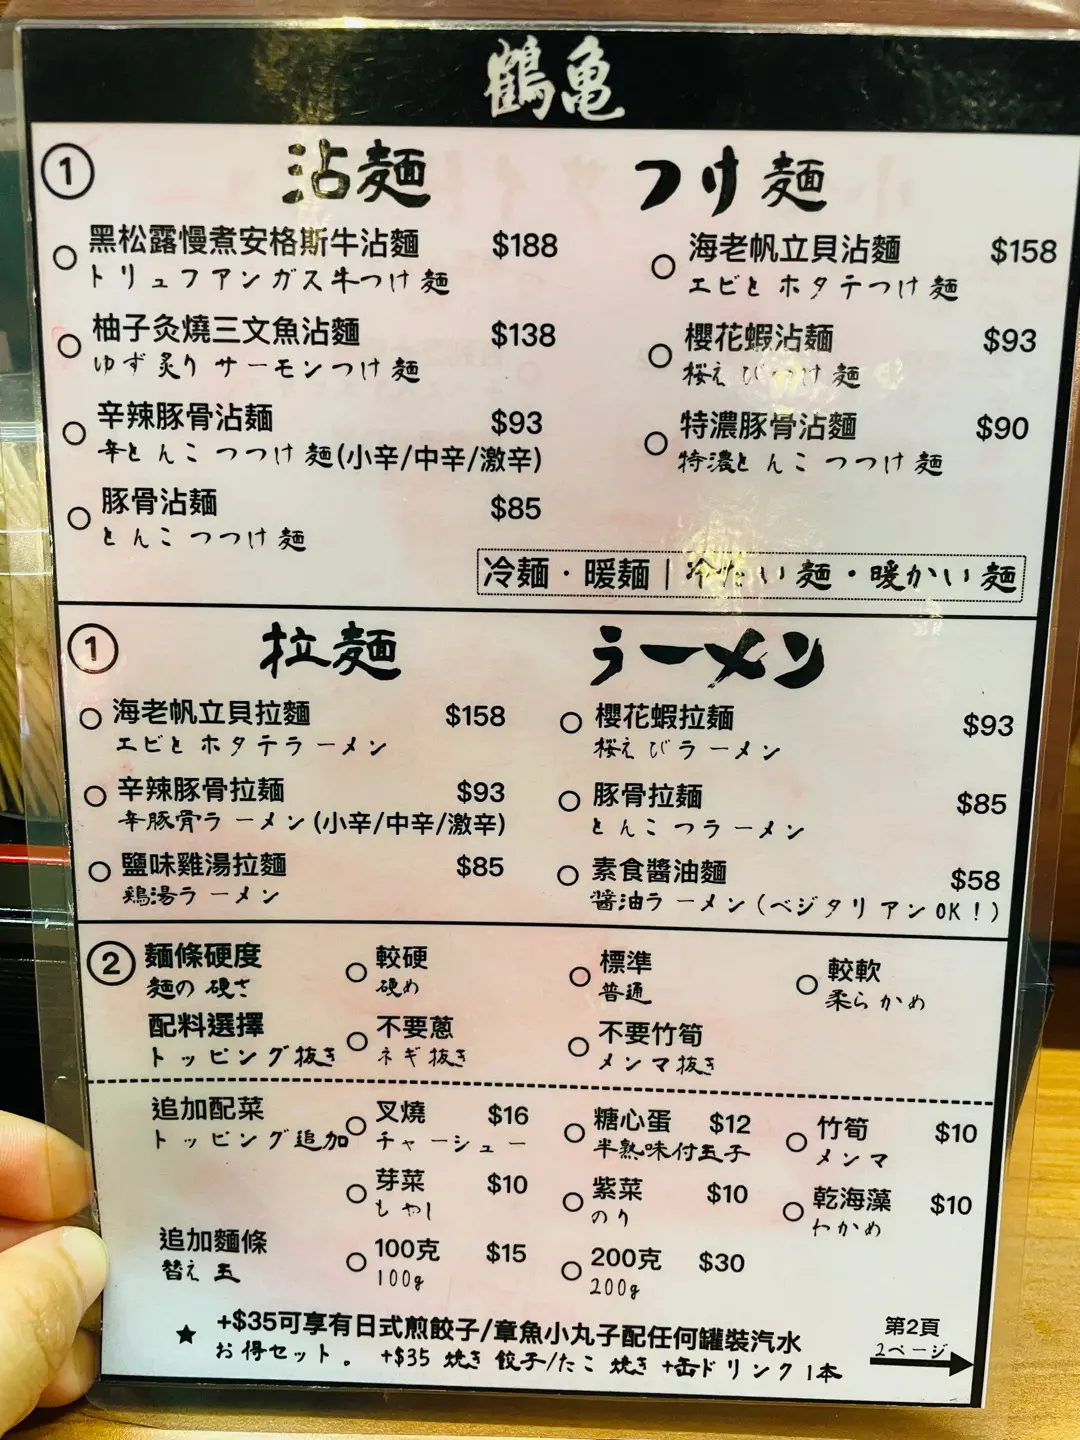 鶴亀
① 沾麵 つけ麺
黑松露慢煮安格斯牛沾麵 $188
トリュフアンガス牛つけ麺
海老帆立貝沾麵 $158
エビとホタテつけ麺
柚子灸燒三文魚沾麵 $138
ゆず炙りサーモンつけ麺
櫻花蝦沾麵 $93
桜えびつけ麺
辛辣豚骨沾麵 $93
辛とんこつつけ麺(小辛/中辛/激辛)
特濃豚骨沾麵 $90
特濃とんこつつけ麺
豚骨沾麵 $85
とんこつつけ麺
冷麵・暖麵 | 冷たい麺・暖かい麺
① 拉麵 ラーメン
海老帆立貝拉麵 $158
エビとホタテラーメン
櫻花蝦拉麵 $93
桜えびラーメン
辛辣豚骨拉麵 $93
辛豚骨ラーメン(小辛/中辛/激辛)
豚骨拉麵 $85
とんこつラーメン
鹽味雞湯拉麵 $85
鶏湯ラーメン
素食醬油麵 $58
醤油ラーメン(ベジタリアンOK!)
② 麵條硬度 較硬 標準 較軟
麺の硬さ 硬め 普通 柔らかめ
配料選擇 不要蔥 不要竹筍
トッピング抜き ネギ抜き メンマ抜き
追加配菜 叉燒 $16 糖心蛋 $12 竹筍 $10
トッピング追加 チャーシュー 半熟味付玉子 メンマ
芽菜 $10 紫菜 $10 乾海藻 $10
もやし のり わかめ
追加麵條 100克 $15 200克 $30
替え玉 100g 200g
★ +$35可享有日式煎餃子/章魚小丸子配任何罐裝汽水
お得セット。 +$35 焼き餃子/たこ焼き+缶ドリンク1本
第2頁
2ページ